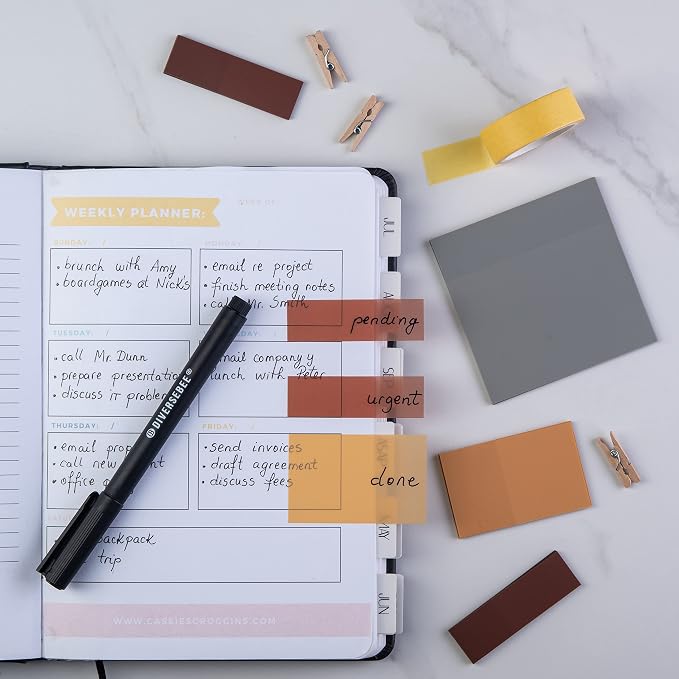 WEEKLY PLANNER:
WEEK OF
SUNDAY: /
• brunch with Amy
• boardgames at Nick's
MONDAY: /
• email re project
• finish meeting notes
• call Mr. Smith
TUESDAY: /
• call Mr. Dunn
• prepare presentation
• discuss IT problem
email company y
lunch with Peter
THURSDAY: /
• email
• call new
• office
FRIDAY: /
• send invoices
• draft agreement
• discuss fees
backpack
trip
WWW.CASSIESCROGGINS.COM
pending
urgent
done
DIVERSEBEE®
JUL
SEP
MAY
JUN